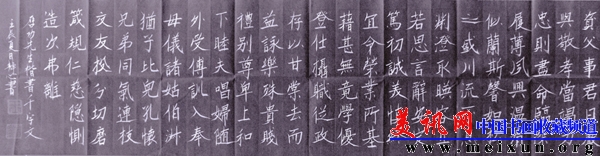 資父事君曰
與敬孝當
忠則盡命臨
履薄夙興溫
似蘭斯馨如
之盛川流不
淵澄取映容
若思言辭安
篤初誠美慎
宜令榮業所基
籍甚無竟學優
登仕攝職從政
存以甘棠去而
益詠樂殊貴賤
禮別尊卑上和
下睦夫唱婦隨
外受傅訓入奉
母儀諸姑伯叔
猶子比兒孔懷
兄弟同氣連枝
交友投分切磨
箴規仁慈隱惻
造次弗離
美讯网 中国书画收藏频道